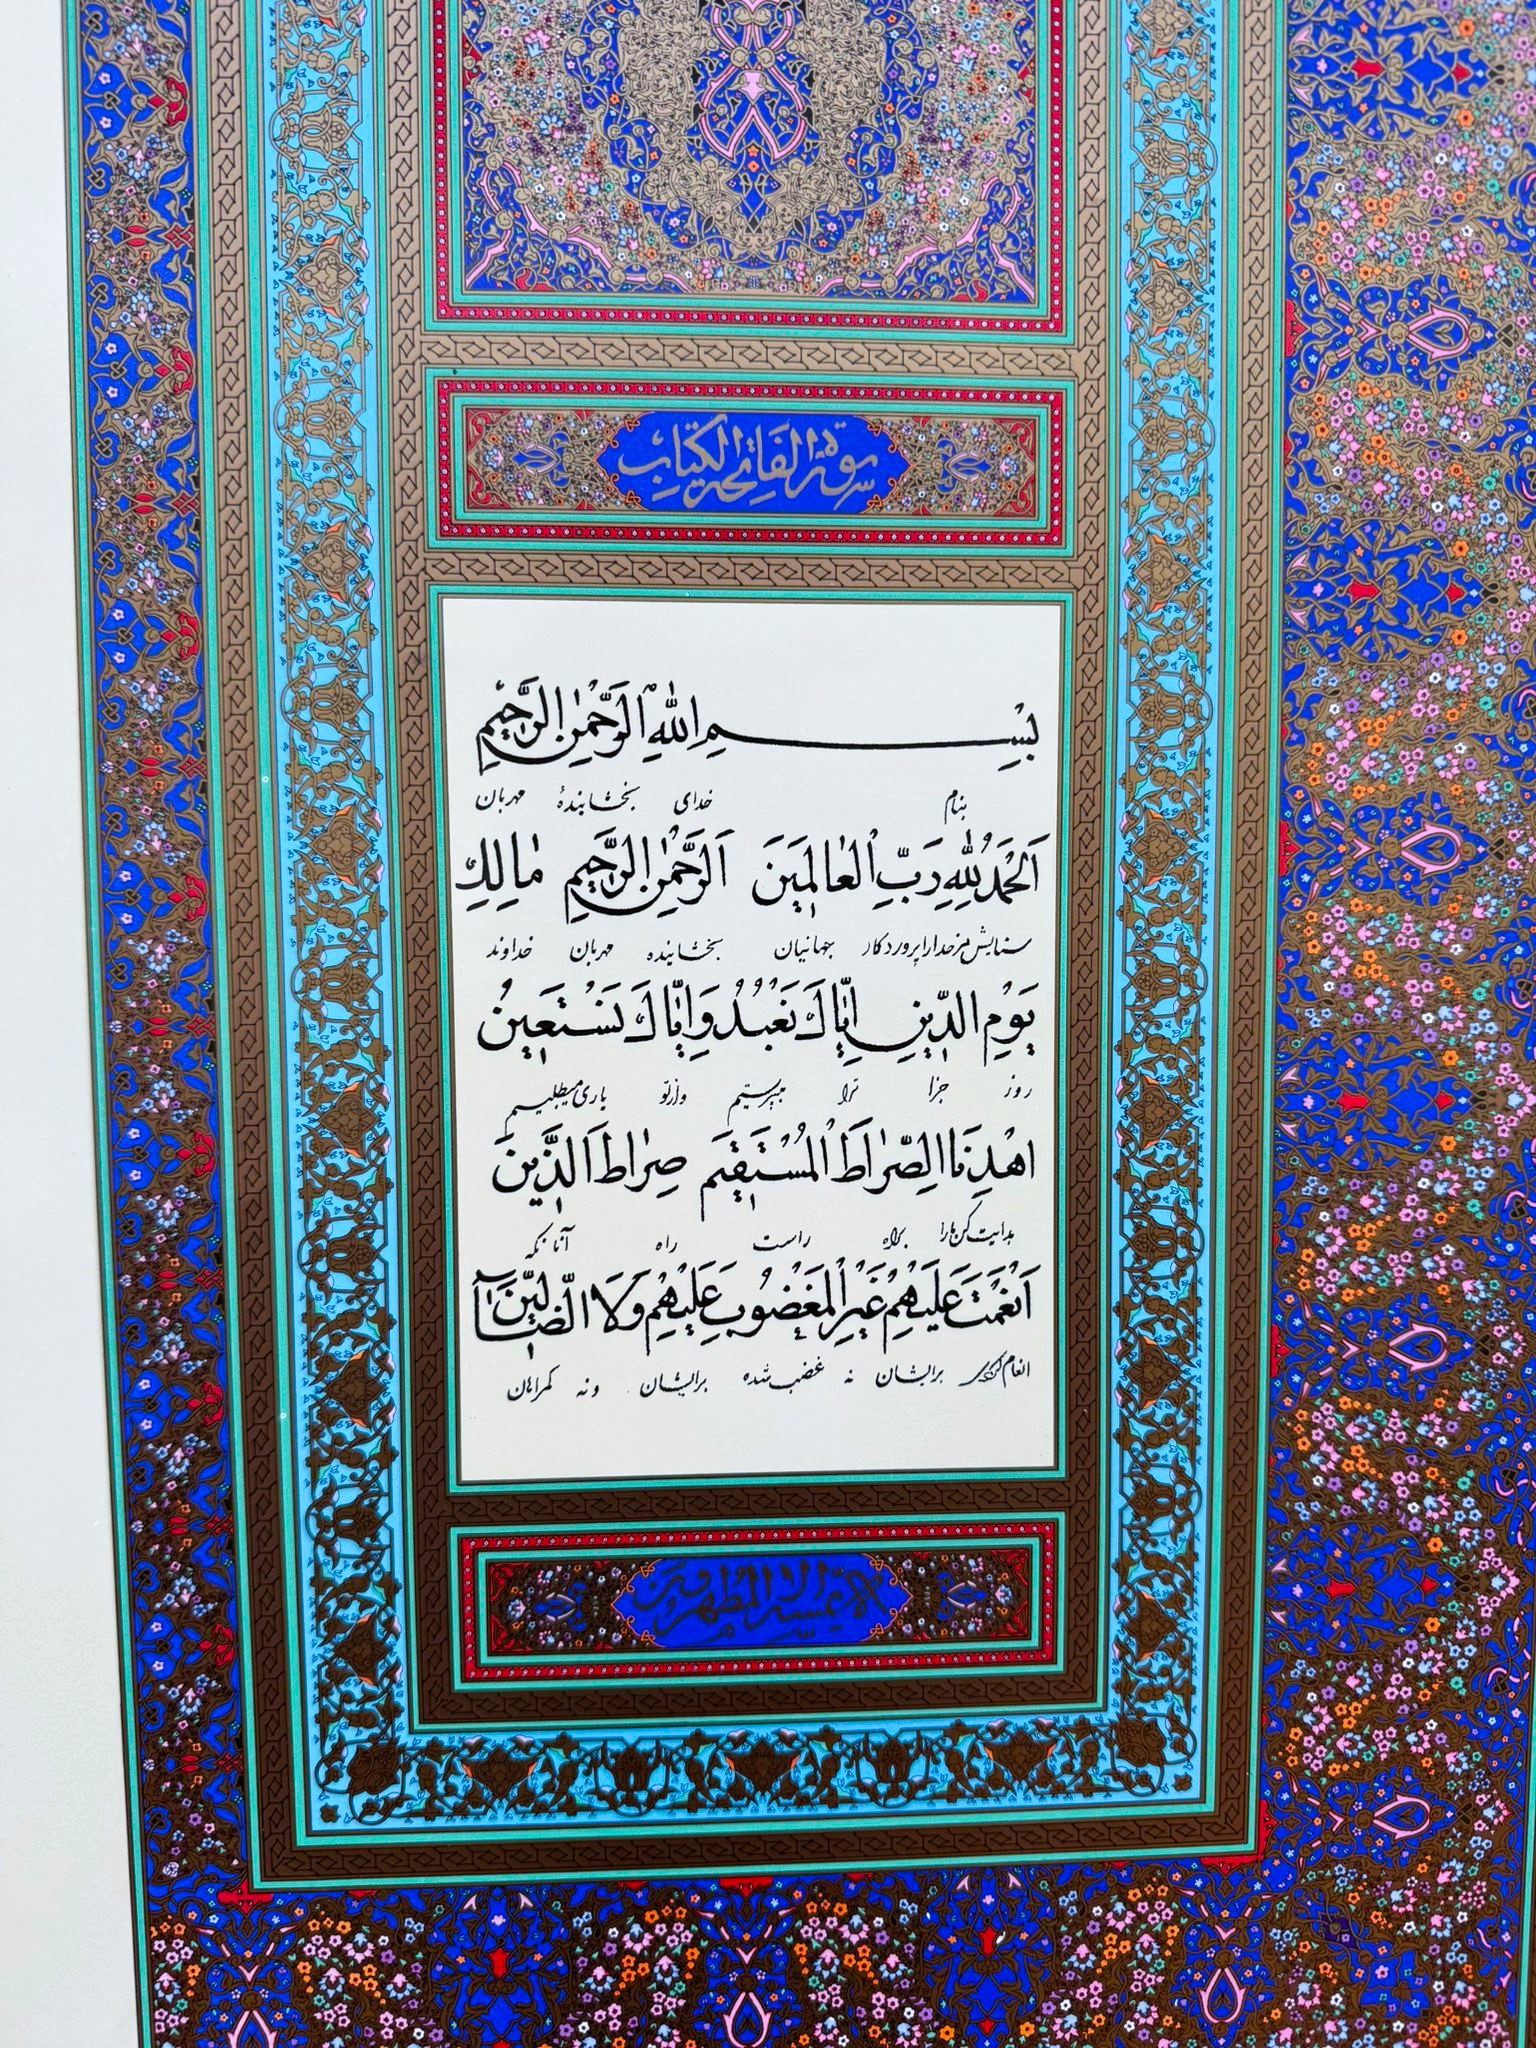 سورة الفاتحة الكتاب
بِسْمِ اللّٰهِ الرَّحْمٰنِ الرَّحِيمِ
بنام خدای بخشایندهٔ مهربان
اَلْحَمْدُ لِلّٰهِ رَبِّ الْعٰالَمِينَ اَلرَّحْمٰنِ الرَّحِيمِ مٰالِكِ
ستایش مر خدا را پروردگار جهانیان بخشاینده مهربان خداوند
يَوْمِ الدِّينِ اِيّٰاكَ نَعْبُدُ وَ اِيّٰاكَ نَسْتَعِينُ
روز جزا ترا میپرستیم و از تو یاری میطلبیم
اهْدِنَا الصِّرٰاطَ الْمُسْتَقِيمَ صِرٰاطَ الَّذِينَ
هدایت کن ما را براه راست راه آنانکه
اَنْعَمْتَ عَلَيْهِمْ غَيْرِ الْمَغْضُوبِ عَلَيْهِمْ وَلَا الضّٰٓالِّينَ
انعام کردی برایشان نه غضب شده برایشان و نه گمراهان
لا يمسه الا المطهرون